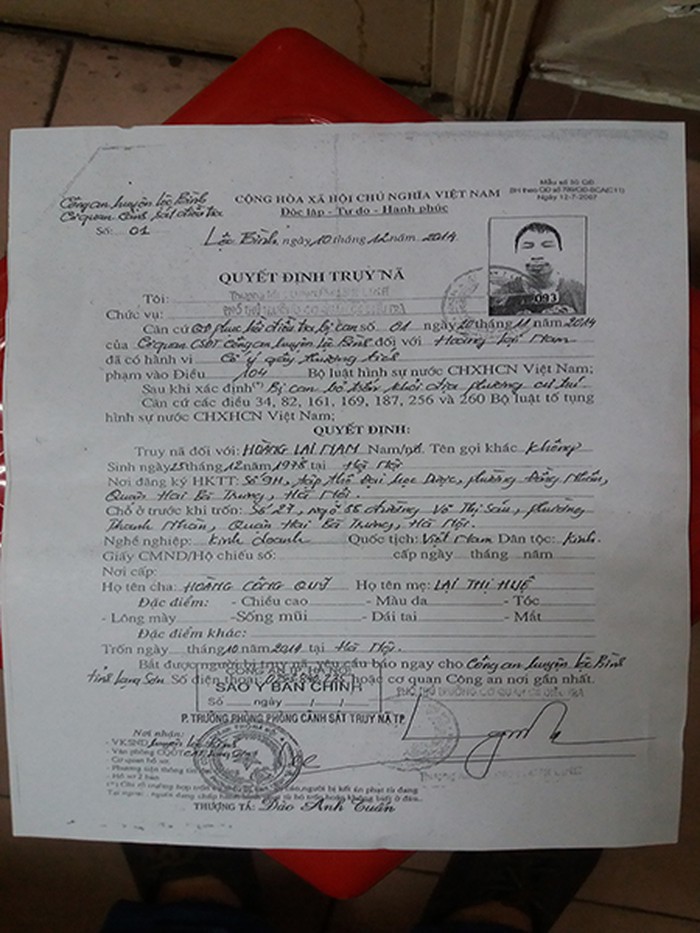 Công an huyện Lộc Bình
Cơ quan Cảnh sát điều tra
Số: 01
CỘNG HÒA XÃ HỘI CHỦ NGHĨA VIỆT NAM
Độc lập - Tự do - Hạnh phúc
Mẫu số
BH theo QĐ số
Ngày 12-7-2007
Lộc Bình, ngày 10 tháng 12 năm 2014
093
QUYẾT ĐỊNH TRUY NÃ
Tôi:
Chức vụ:
Căn cứ QĐ phục hồi điều tra bị can số 01 ngày 20 tháng 11 năm 2014
của Cơ quan CSĐT Công an huyện Lộc Bình đối với Hoàng Lại Nam
đã có hành vi Cố ý gây thương tích
phạm vào Điều 104 Bộ luật hình sự nước CHXHCN Việt Nam;
Sau khi xác định(*) Bị can bỏ trốn khỏi địa phương cư trú
Căn cứ các điều 34, 82, 161, 169, 187, 256 và 260 Bộ luật tố tụng
hình sự nước CHXHCN Việt Nam;
QUYẾT ĐỊNH:
Truy nã đối với: HOÀNG LẠI NAM Nam/nữ. Tên gọi khác không
Sinh ngày 25 tháng 12 năm 1978 tại Hà Nội
Nơi đăng ký HKTT: Số 9H, tập thể Đại học Dược, phường Đồng Nhân,
Quận Hai Bà Trưng, Hà Nội.
Chỗ ở trước khi trốn: Số 27, ngõ 55 đường Võ Thị Sáu, phường
Thanh Nhàn, Quận Hai Bà Trưng, Hà Nội.
Nghề nghiệp: Kinh doanh Quốc tịch: Việt Nam Dân tộc: Kinh.
Giấy CMND/Hộ chiếu số: cấp ngày tháng năm
Nơi cấp:
Họ tên cha: HOÀNG CÔNG QUỸ Họ tên mẹ: LẠI THỊ HUỆ
Đặc điểm: - Chiều cao - Màu da - Tóc
- Lông mày - Sống mũi - Dái tai - Mắt
Đặc điểm khác:
Trốn ngày tháng 10 năm 2014 tại Hà Nội.
Bắt được người bị truy nã, yêu cầu báo ngay cho Công an huyện Lộc Bình
tỉnh Lạng Sơn Số điện thoại hoặc cơ quan Công an nơi gần nhất.
CÔNG AN TP HÀ NỘI
SAO Y BẢN CHÍNH
Số ngày / /
P. TRƯỞNG PHÒNG PHÒNG CẢNH SÁT TRUY NÃ TP
Nơi nhận:
- VKSND huyện Lộc Bình
- Văn phòng CQĐT
- Cơ quan hồ sơ
- Phương tiện thông tin
- Hồ sơ 2 bản
THƯỢNG TÁ: Đào Anh Tuấn